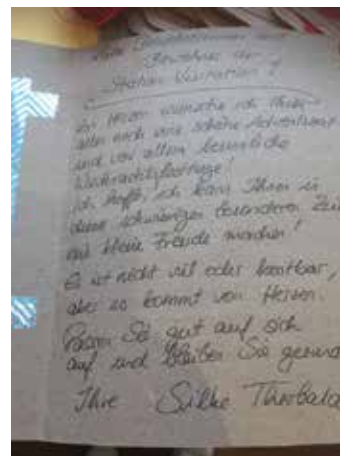 Bewohner der
Station Visitation !
von Herzen wünsche ich Ihnen
allen noch eine schöne Adventszeit
und vor allem besinnliche
Weihnachtsfesttage!
Ich hoffe, ich kann Ihnen in
dieser schwierigen besonderen Zeit
eine kleine Freude machen!
Es ist nicht viel oder kostbar,
aber es kommt von Herzen.
Passen Sie gut auf sich
auf und bleiben Sie gesund
Ihre Silke Theobald